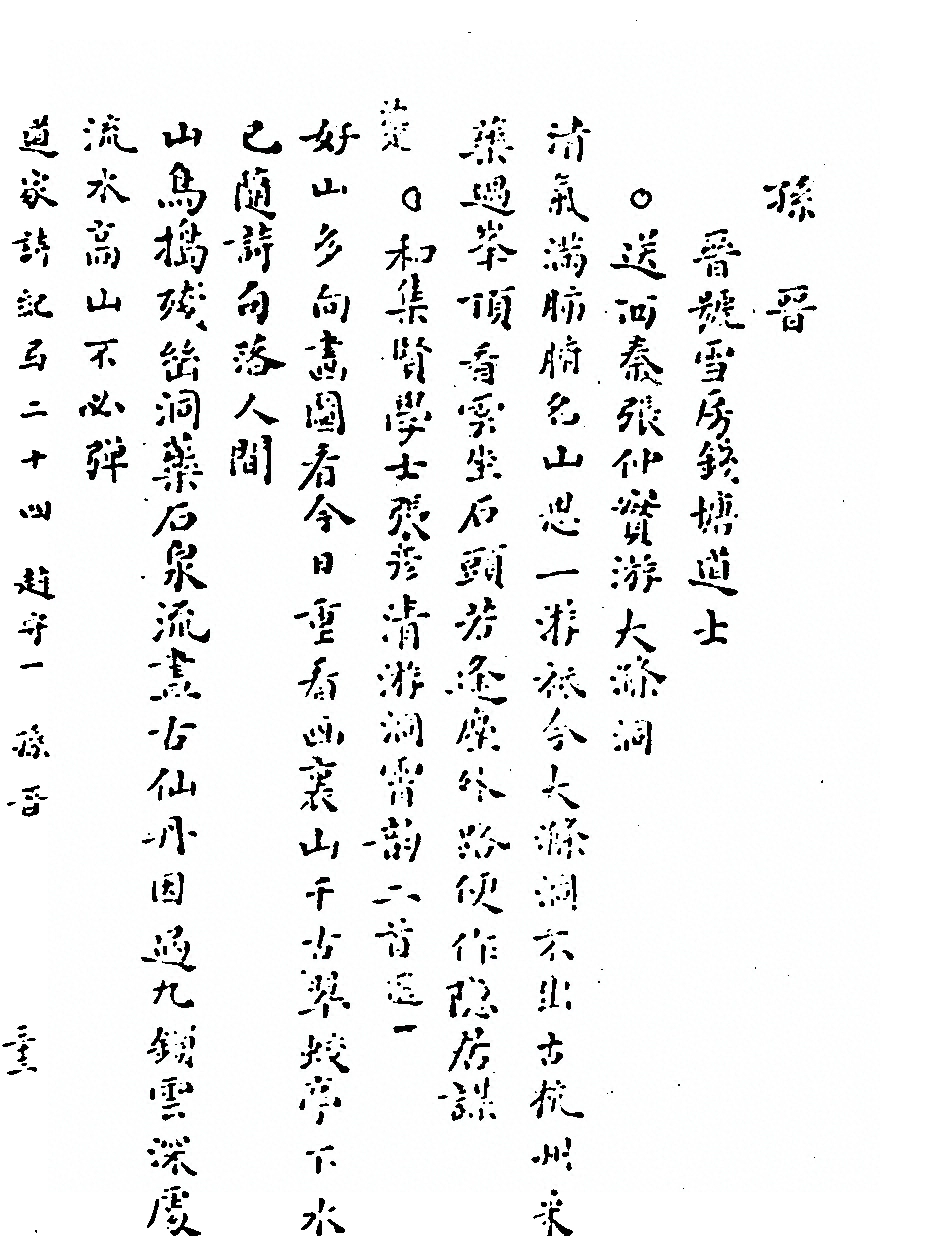 孫晉
晉號雪房錢塘道士
○送河秦張仲實游大滌洞
清氣滿肺腑名山思一游祇今大滌洞不出古杭州采
藥過峯頂看雲坐石頭若逢塵外路便作隱居謀
○和集賢學士張彦清游洞霄韵二首選一
好山多向畫圖看今日重看画裏山千古翠蛟亭下水
已隨詩句落人間
山鳥搗殘嵓洞藥石泉流盡古仙丹因過九鎖雲深處
流水高山不必彈
道家詩紀卷二十四 趙守一 孫晉